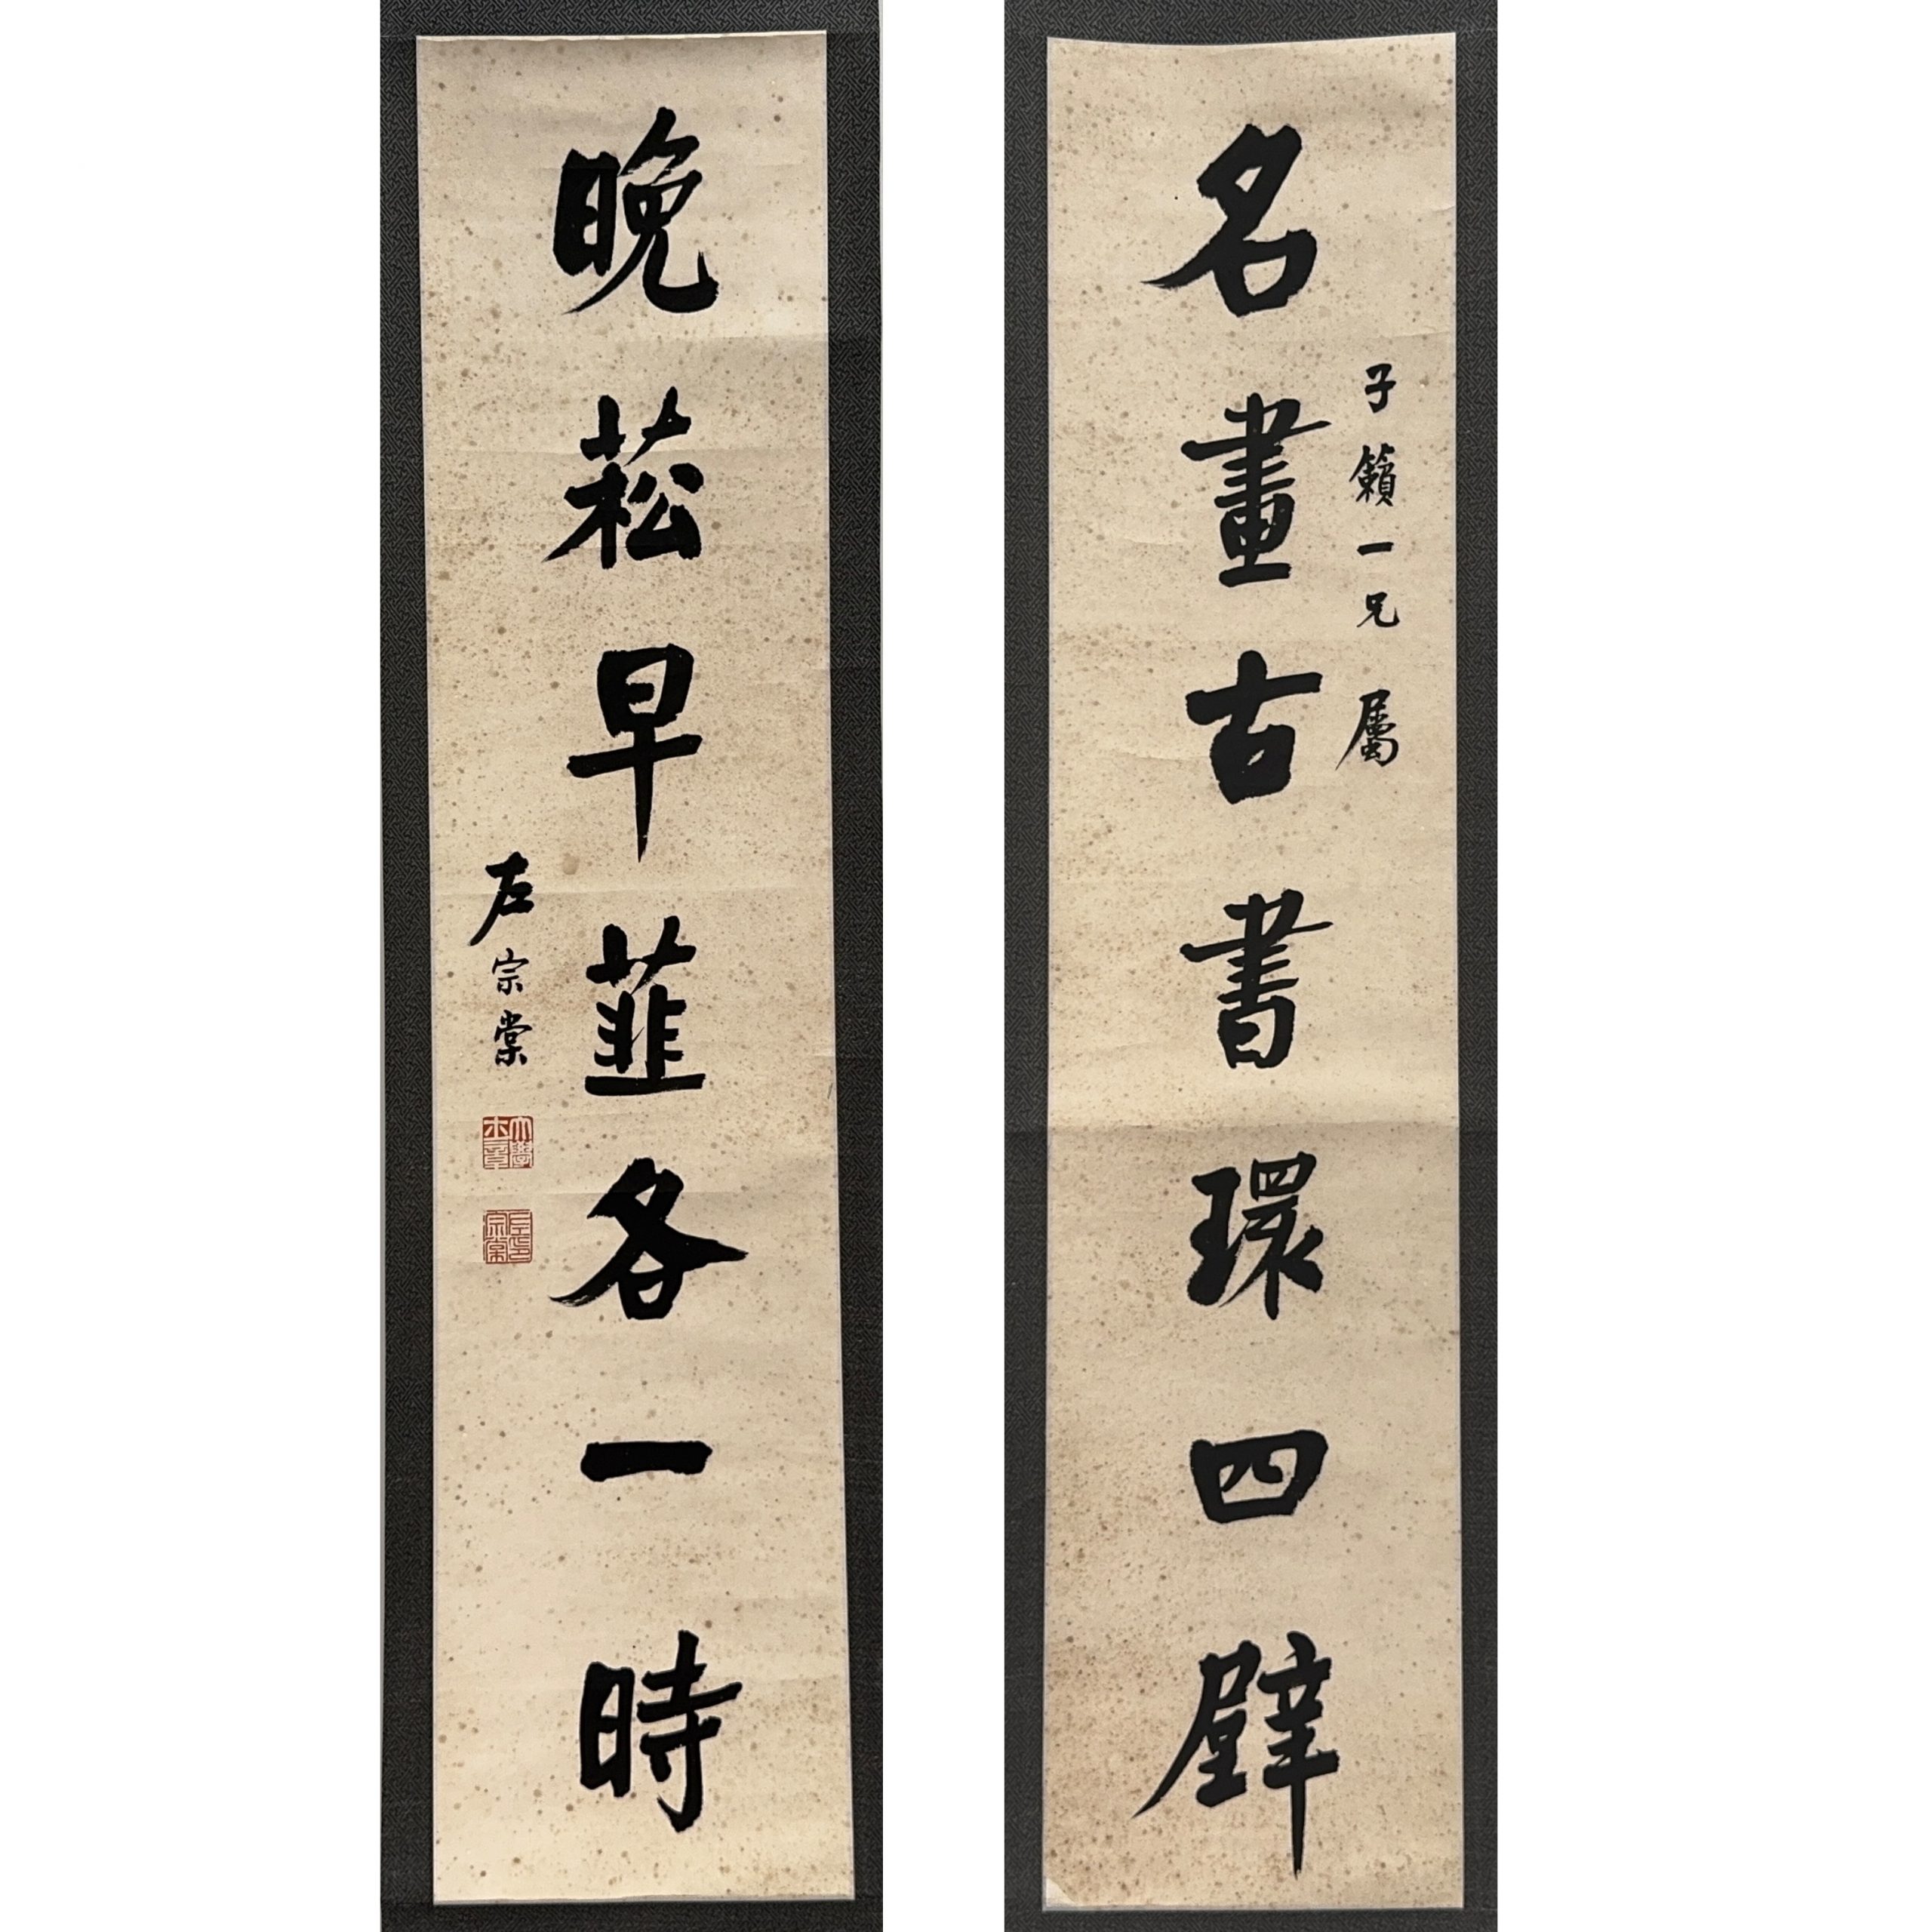 名畫古書環四壁
子籟一兄屬
晚菘早韮各一時
左宗棠
大學士章
左宗棠印